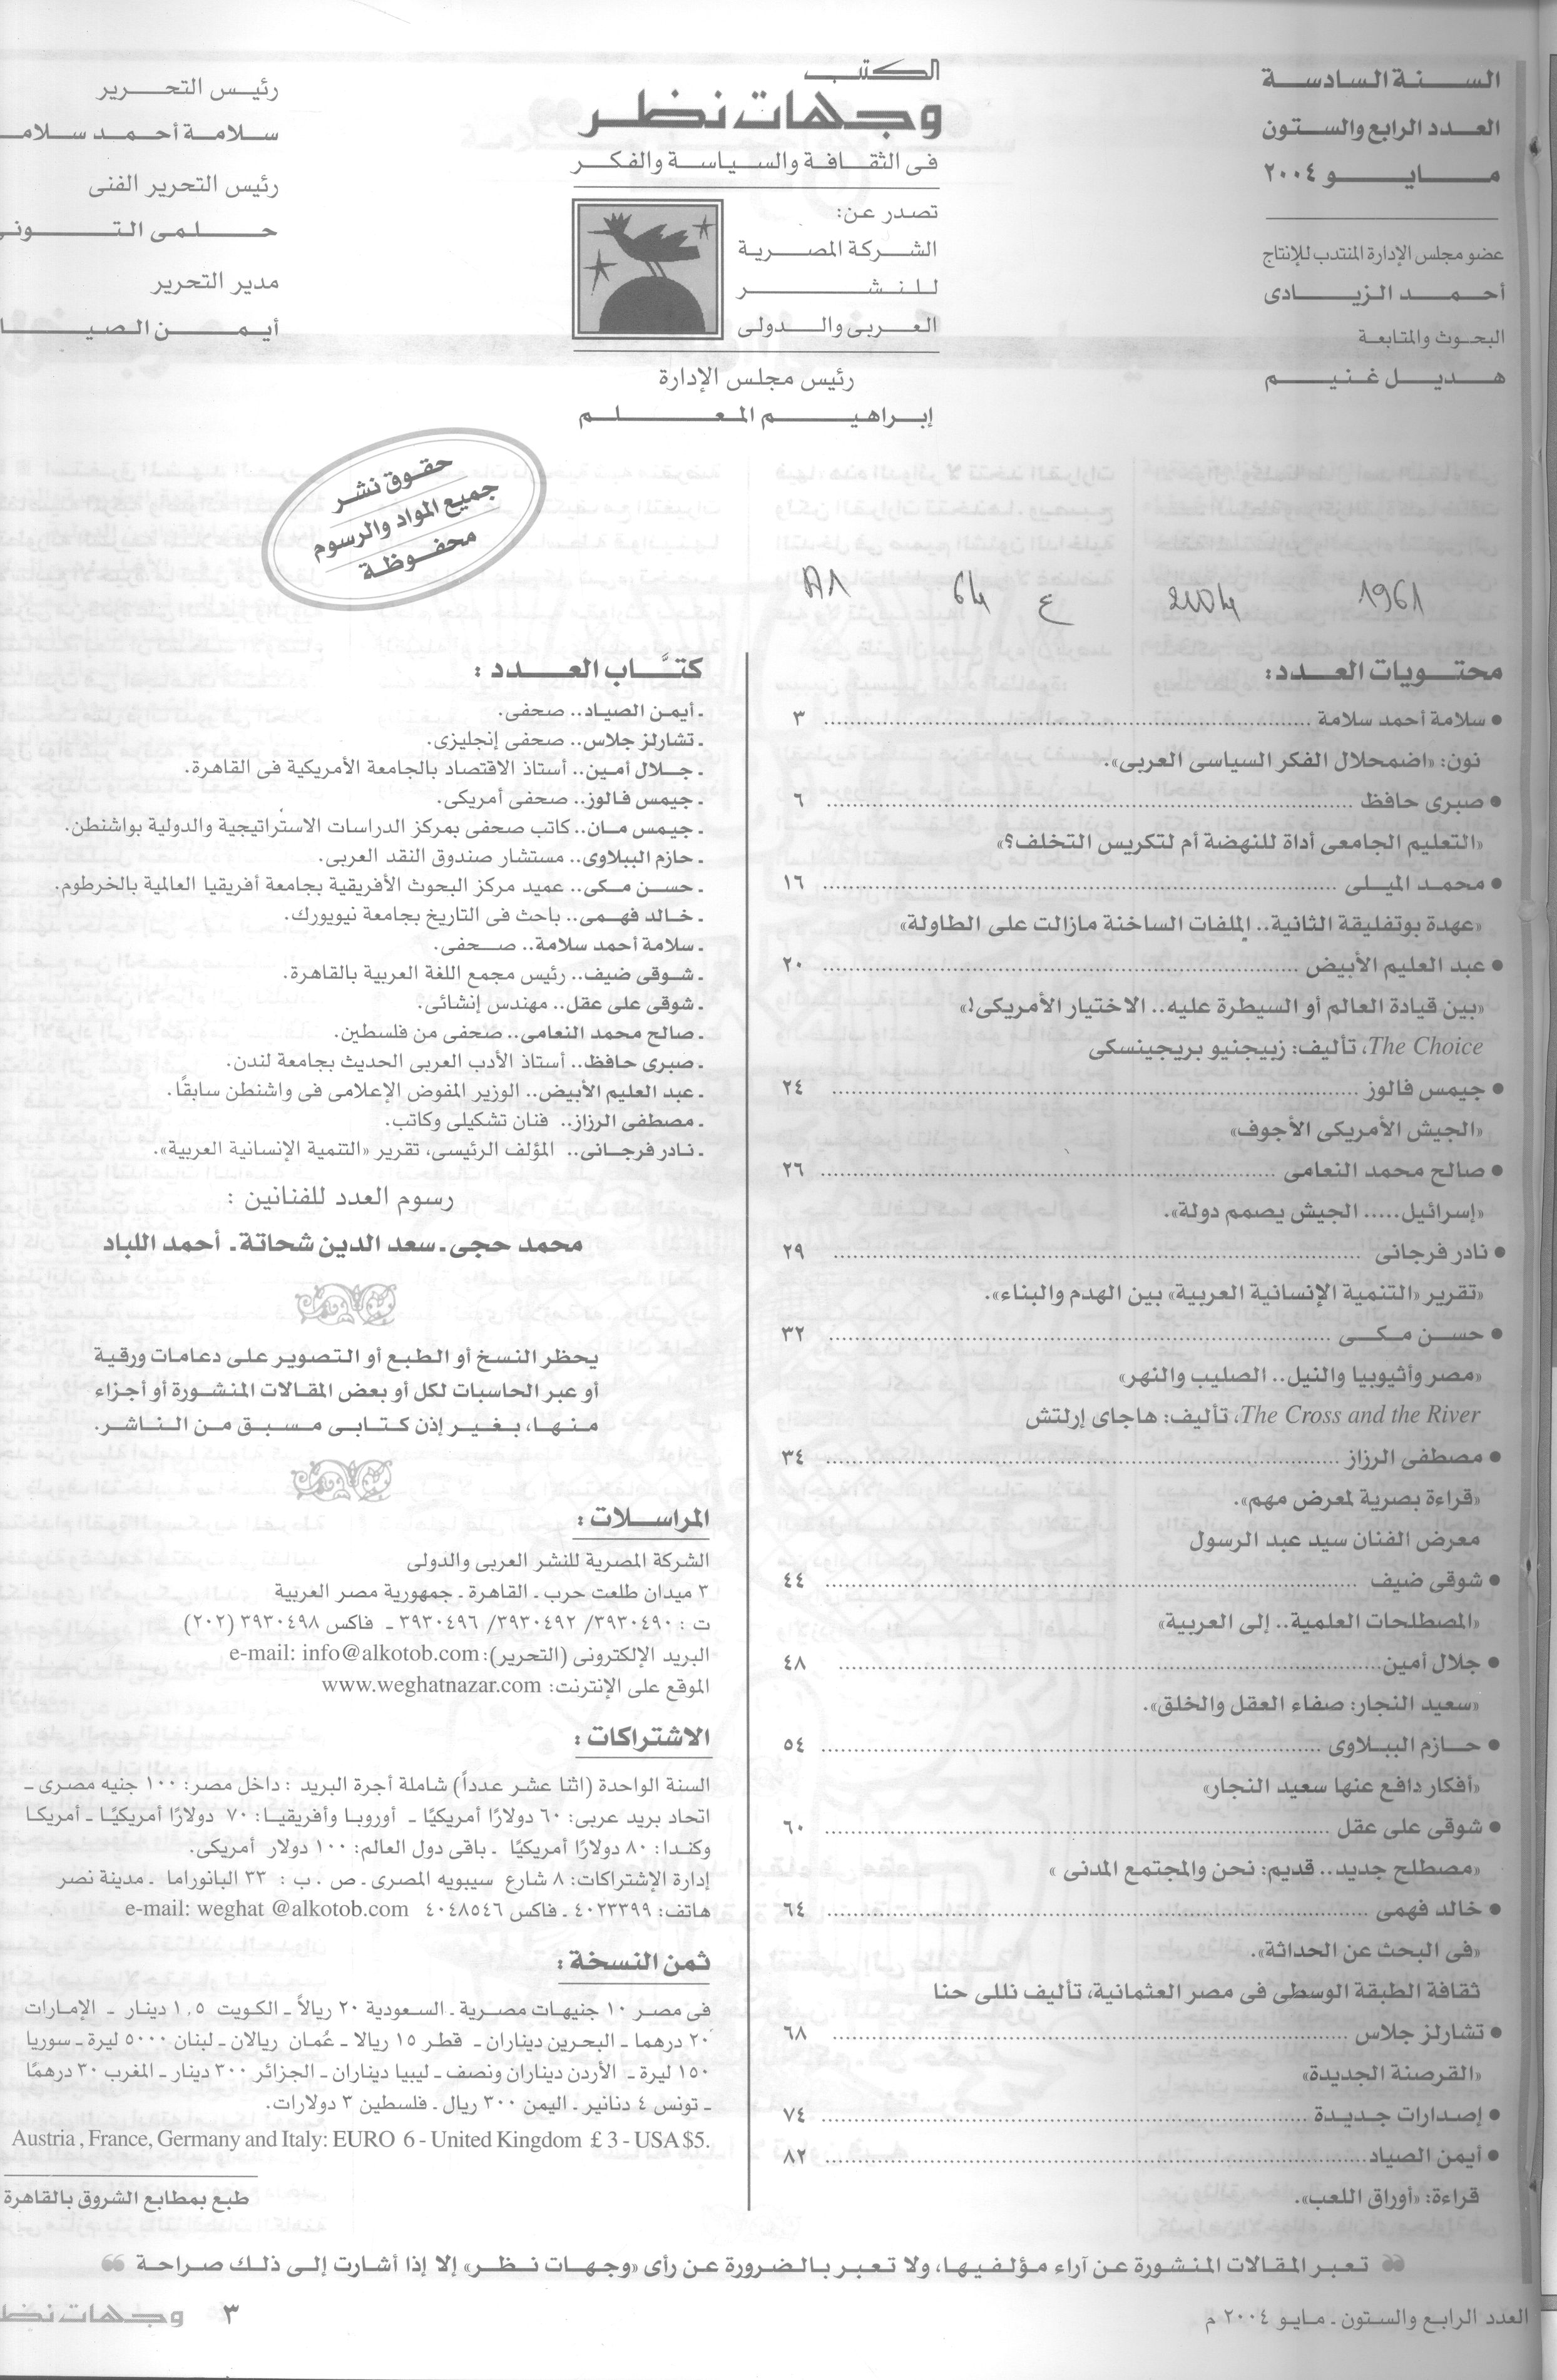 السنة السادسة
العدد الرابع والستون
مايو ٢٠٠٤
عضو مجلس الإدارة المنتدب للإنتاج
أحمد الزيادى
البحوث والمتابعة
هديل غنيم
الكتب
وجهات نظر
فى الثقافة والسياسة والفكر
تصدر عن:
الشركة المصرية
للنشر
العربى والدولى
رئيس مجلس الإدارة
إبراهيم المعلم
رئيس التحرير
سلامة أحمد سلامـ
رئيس التحرير الفنى
حلمى التونى
مدير التحرير
أيمن الصيا
حقوق نشر
جميع المواد والرسوم
محفوظة
A1 64 ع 2004 1961
محتويات العدد:
• سلامة أحمد سلامة ........ ٣
نون: «اضمحلال الفكر السياسى العربى».
• صبرى حافظ ........ ٦
«التعليم الجامعى أداة للنهضة أم لتكريس التخلف؟»
• محمد الميلى ........ ١٦
«عهدة بوتفليقة الثانية.. الملفات الساخنة مازالت على الطاولة»
• عبد العليم الأبيض ........ ٢٠
«بين قيادة العالم أو السيطرة عليه.. الاختيار الأمريكى!»
The Choice، تأليف: زبيجنيو بريجينسكى
• جيمس فالوز ........ ٢٤
«الجيش الأمريكى الأجوف»
• صالح محمد النعامى ........ ٢٦
«إسرائيل..... الجيش يصمم دولة».
• نادر فرجانى ........ ٢٩
«تقرير «التنمية الإنسانية العربية» بين الهدم والبناء».
• حسن مكى ........ ٣٢
«مصر وأثيوبيا والنيل.. الصليب والنهر»
The Cross and the River، تأليف: هاجاى إرلتش
• مصطفى الرزاز ........ ٣٤
«قراءة بصرية لمعرض مهم».
معرض الفنان سيد عبد الرسول
• شوقى ضيف ........ ٤٤
«المصطلحات العلمية.. إلى العربية»
• جلال أمين ........ ٤٨
«سعيد النجار: صفاء العقل والخلق».
• حازم الببلاوى ........ ٥٤
«أفكار دافع عنها سعيد النجار»
• شوقى على عقل ........ ٦٠
«مصطلح جديد.. قديم: نحن والمجتمع المدنى »
• خالد فهمى ........ ٦٤
«فى البحث عن الحداثة».
ثقافة الطبقة الوسطى فى مصر العثمانية، تأليف نللى حنا
• تشارلز جلاس ........ ٦٨
«القرصنة الجديدة»
• إصدارات جديدة ........ ٧٤
• أيمن الصياد ........ ٨٢
قراءة: «أوراق اللعب».
كتَّاب العدد :
ـ أيمن الصياد.. صحفى.
ـ تشارلز جلاس.. صحفى إنجليزى.
ـ جلال أمين.. أستاذ الاقتصاد بالجامعة الأمريكية فى القاهرة.
ـ جيمس فالوز.. صحفى أمريكى.
ـ جيمس مان.. كاتب صحفى بمركز الدراسات الاستراتيجية والدولية بواشنطن.
ـ حازم الببلاوى.. مستشار صندوق النقد العربى.
ـ حسن مكى.. عميد مركز البحوث الأفريقية بجامعة أفريقيا العالمية بالخرطوم.
ـ خالد فهمى.. باحث فى التاريخ بجامعة نيويورك.
ـ سلامة أحمد سلامة.. صحفى.
ـ شوقى ضيف.. رئيس مجمع اللغة العربية بالقاهرة.
ـ شوقى على عقل.. مهندس إنشائى.
ـ صالح محمد النعامى.. صحفى من فلسطين.
ـ صبرى حافظ.. أستاذ الأدب العربى الحديث بجامعة لندن.
ـ عبد العليم الأبيض.. الوزير المفوض الإعلامى فى واشنطن سابقًا.
ـ مصطفى الرزاز.. فنان تشكيلى وكاتب.
ـ نادر فرجانى.. المؤلف الرئيسى، تقرير «التنمية الإنسانية العربية».
رسوم العدد للفنانين :
محمد حجى ـ سعد الدين شحاتة ـ أحمد اللباد
يحظر النسخ أو الطبع أو التصوير على دعامات ورقية
أو عبر الحاسبات لكل أو بعض المقالات المنشورة أو أجزاء
منها، بغير إذن كتابى مسبق من الناشر.
المراسلات :
الشركة المصرية للنشر العربى والدولى
٣ ميدان طلعت حرب ـ القاهرة ـ جمهورية مصر العربية
ت : ٣٩٣٠٤٩٠/ ٣٩٣٠٤٩٢/ ٣٩٣٠٤٩٦ ـ فاكس ٣٩٣٠٤٩٨ (٢٠٢)
البريد الإلكترونى (التحرير): e-mail: info@alkotob.com
الموقع على الإنترنت: www.weghatnazar.com
الاشتراكات :
السنة الواحدة (اثنا عشر عدداً) شاملة أجرة البريد : داخل مصر: ١٠٠ جنيه مصرى ـ
اتحاد بريد عربى: ٦٠ دولارًا أمريكيًا ـ أوروبا وأفريقيا: ٧٠ دولارًا أمريكيًا ـ أمريكا
وكندا: ٨٠ دولارًا أمريكيًا ـ باقى دول العالم: ١٠٠ دولار أمريكى.
إدارة الإشتراكات: ٨ شارع سيبويه المصرى ـ ص . ب : ٣٣ البانوراما ـ مدينة نصر
هاتف: ٤٠٢٣٣٩٩ ـ فاكس ٤٠٤٨٥٤٦ e-mail: weghat @alkotob.com
ثمن النسخة :
فى مصر ١٠ جنيهات مصرية ـ السعودية ٢٠ ريالاً ـ الكويت ١,٥ دينار ـ الإمارات
٢٠ درهما ـ البحرين ديناران ـ قطر ١٥ ريالا ـ عُمان ريالان ـ لبنان ٥٠٠٠ ليرة ـ سوريا
١٥٠ ليرة ـ الأردن ديناران ونصف ـ ليبيا ديناران ـ الجزائر ٣٠٠ دينار ـ المغرب ٣٠ درهمًا
ـ تونس ٤ دنانير ـ اليمن ٣٠٠ ريال ـ فلسطين ٣ دولارات.
Austria , France, Germany and Italy: EURO 6 - United Kingdom £ 3 - USA $5.
طبع بمطابع الشروق بالقاهرة
تعبر المقالات المنشورة عن آراء مؤلفيها، ولا تعبر بالضرورة عن رأى «وجهات نظر» إلا إذا أشارت إلى ذلك صراحة
العدد الرابع والستون ـ مايو ٢٠٠٤ م
٣ وجهات نظ